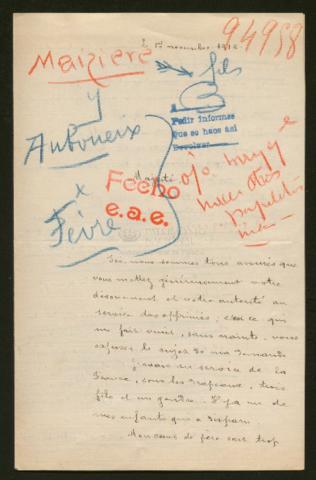 le 1er novembre 1916
94958
Maiziere
fils
y
Auboueix
x
Fèvre
Pedir informes
Que se haga así
Devolver
Majesté
Fecho
e.a.e.
ojo muy
Ici nous sommes tous assurés que
vous mettez généreusement votre
dévouement et votre autorité au
service des opprimés ; c'est ce qui
me fait venir, sans crainte, vous
exposer le sujet de ma demande
J'avais au service de la
France, sous les drapeaux, trois
fils et un gendre. Il y a un de
mes enfants qui a disparu
Mon cœur de père sait trop